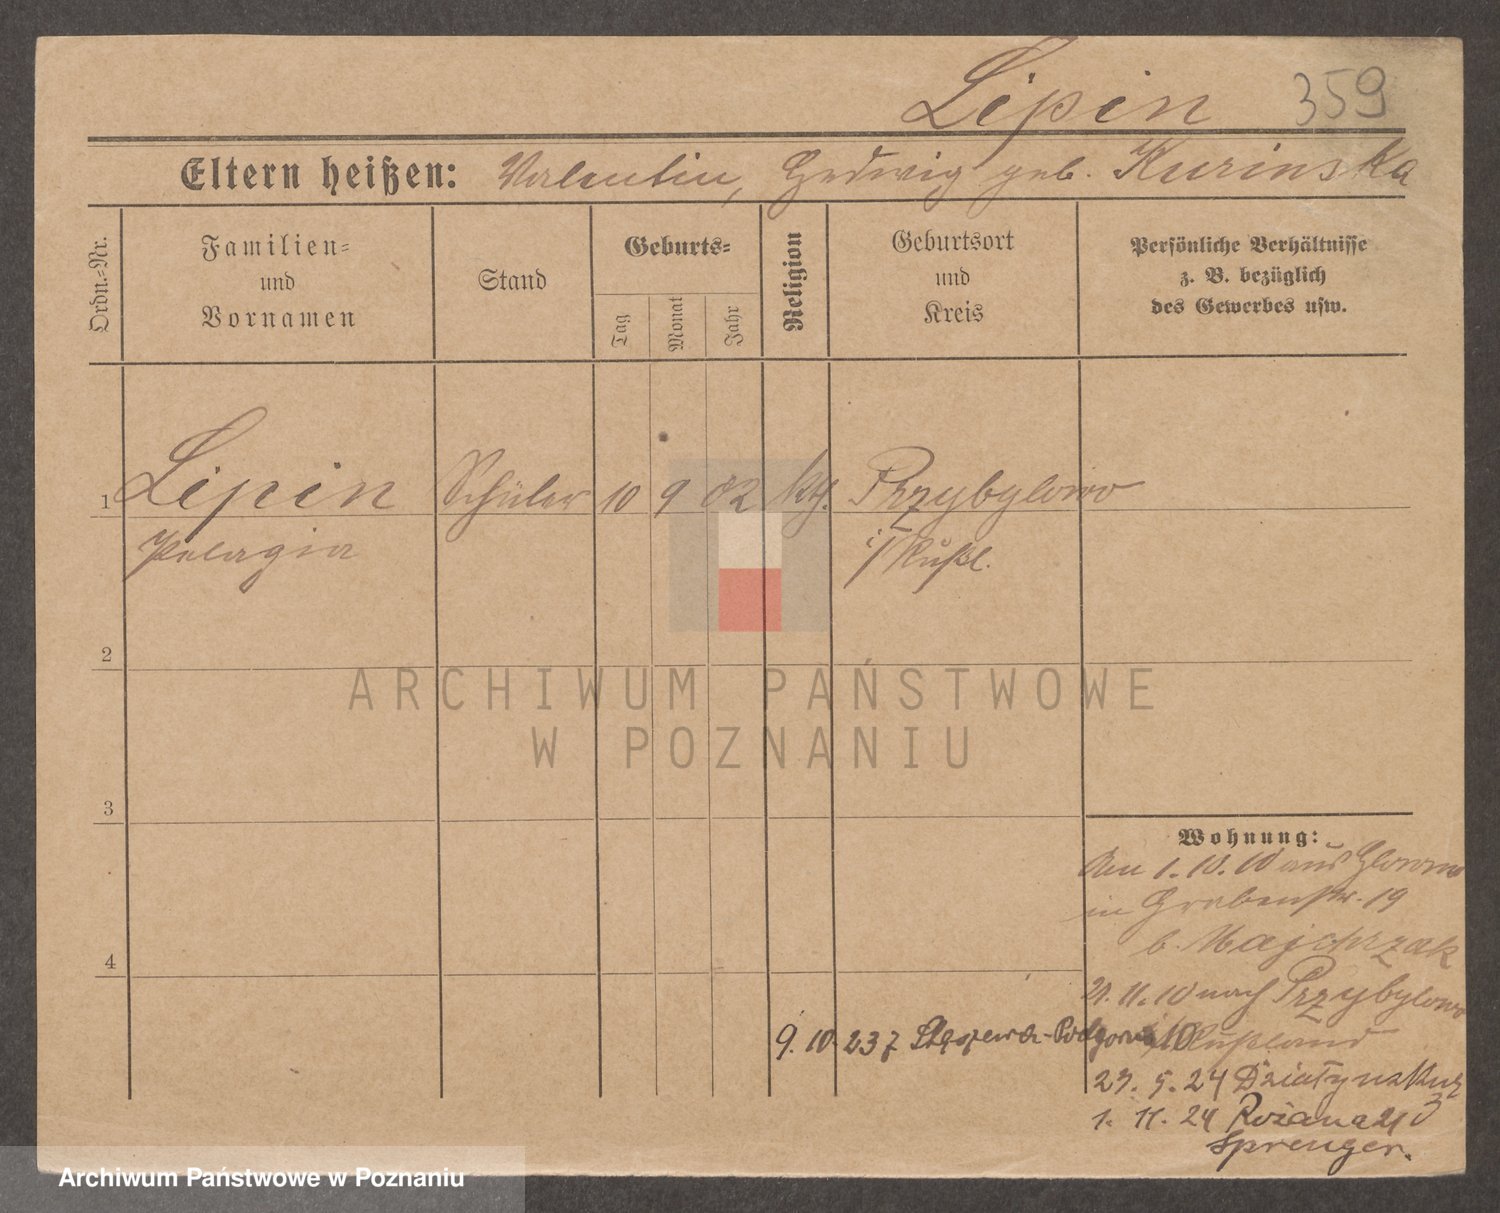 Lipin 359
Eltern heißen: Valentin, Hedwig geb. Kurinska
Ordn.-Nr.
Familien-
und
Vornamen
Stand
Geburts-
Tag
Monat
Jahr
Religion
Geburtsort
und
Kreis
Persönliche Verhältnisse
z. B. bezüglich
des Gewerbes usw.
1 Lipin Schüler 10 9 82 kth. Przybylowo
Pelagia i/Rußl.
2
ARCHIWUM PAŃSTWOWE
W POZNANIU
3
Wohnung:
1. 10. 10 aus
in Grabenstr. 19
b. Majchrzak
4
21. 11. 10 nach Przybylowo
i/Rußland
9. 10. 23 z
23. 5. 24
1. 11. 24 Różana 21
Sprenger.
Archiwum Państwowe w Poznaniu